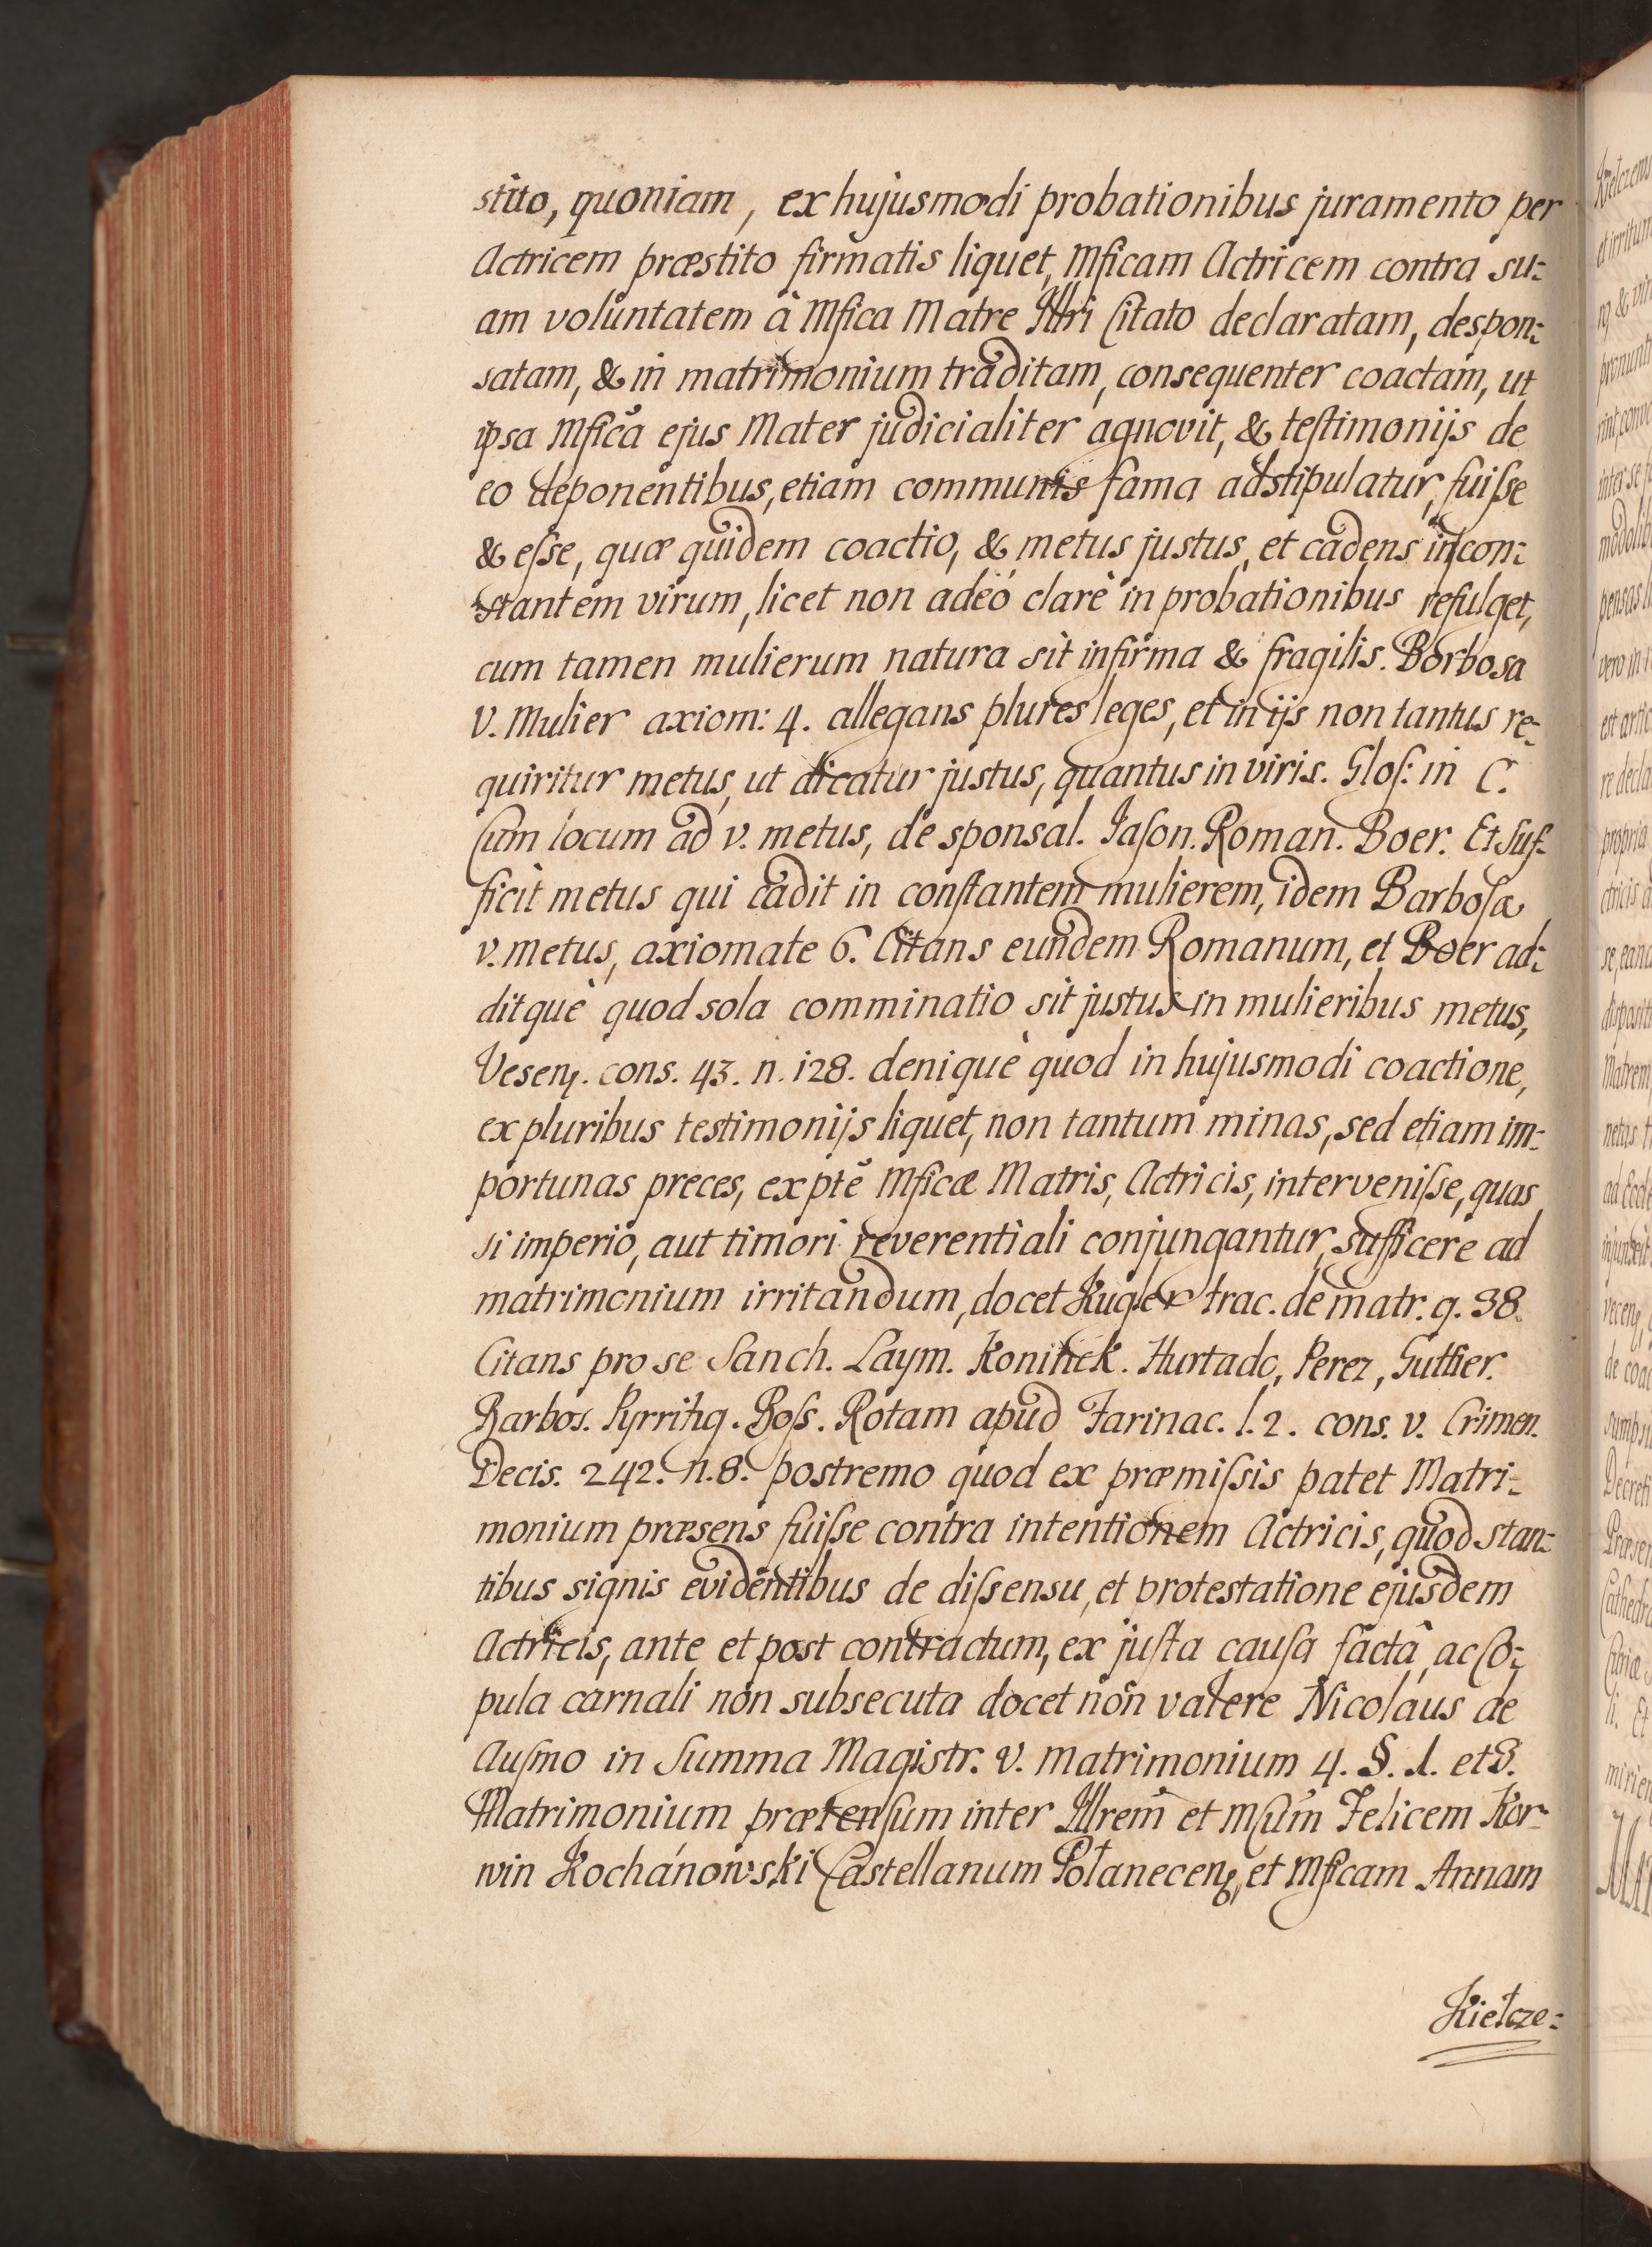 stito, quoniam, ex hujusmodi probationibus juramento per
Actricem præstito firmatis liquet, Mficam Actricem contra su:
am voluntatem à Mfica Matre Illri Citato declaratam, despon:
satam, & in matrimonium traditam, consequenter coactam, ut
ipsa Mfica ejus Mater judicialiter agnovit, & testimonijs de
eo deponentibus, etiam communis fama adstipulatur, fuisse
& esse, quæ quidem coactio, & metus justus, et cadens in con:
stantem virum, licet non adeò clarè in probationibus refulget,
cum tamen mulierum natura sit infirma & fragilis. Borbosa
V. Mulier axiom: 4. allegans plures leges, et in ijs non tantus re:
quiritur metus, ut dicatur justus, quantus in viris. Glos: in C.
Cum locum ad v. metus, de sponsal. Jason. Roman. Boer. Et suf:
ficit metus qui cadit in constantem mulierem, idem Barbosa
v. metus, axiomate 6. Citans eundem Romanum, et Boer ad:
ditquè quod sola comminatio sit justus in mulieribus metus,
Veseņ. cons. 43. n. i28. deniquè quod in hujusmodi coactione,
ex pluribus testimonijs liquet, non tantum minas, sed etiam im:
portunas preces, ex ptē Mficæ Matris, Actricis, intervenisse, quas
si imperio, aut timori reverentiali conjungantur, sufficere ad
matrimonium irritandum, docet Kugler trac. de matr. q. 38.
Citans pro se Sanch. Laym. Koninck. Hurtado, Perez, Guttier.
Barbos. Pyrrihg. Boss. Rotam apud Farinac. l. 2. cons. v. Crimen.
Decis. 242. n. 8. postremo quod ex præmissis patet Matri:
monium præsens fuisse contra intentionem Actricis, quod stan:
tibus signis evidentibus de dissensu, et protestatione ejusdem
Actricis, ante et post contractum, ex justa causa factâ, ac Co:
pula carnali non subsecuta docet non valere Nicolaus de
Ausmo in Summa Magistr. V. matrimonium 4. §. 1. et 3.
Matrimonium prætensum inter Illrem et Msūm Felicem Kor:
win Kochanowski Castellanum Połaneceņ, et Mficam Annam
Kiełcze: